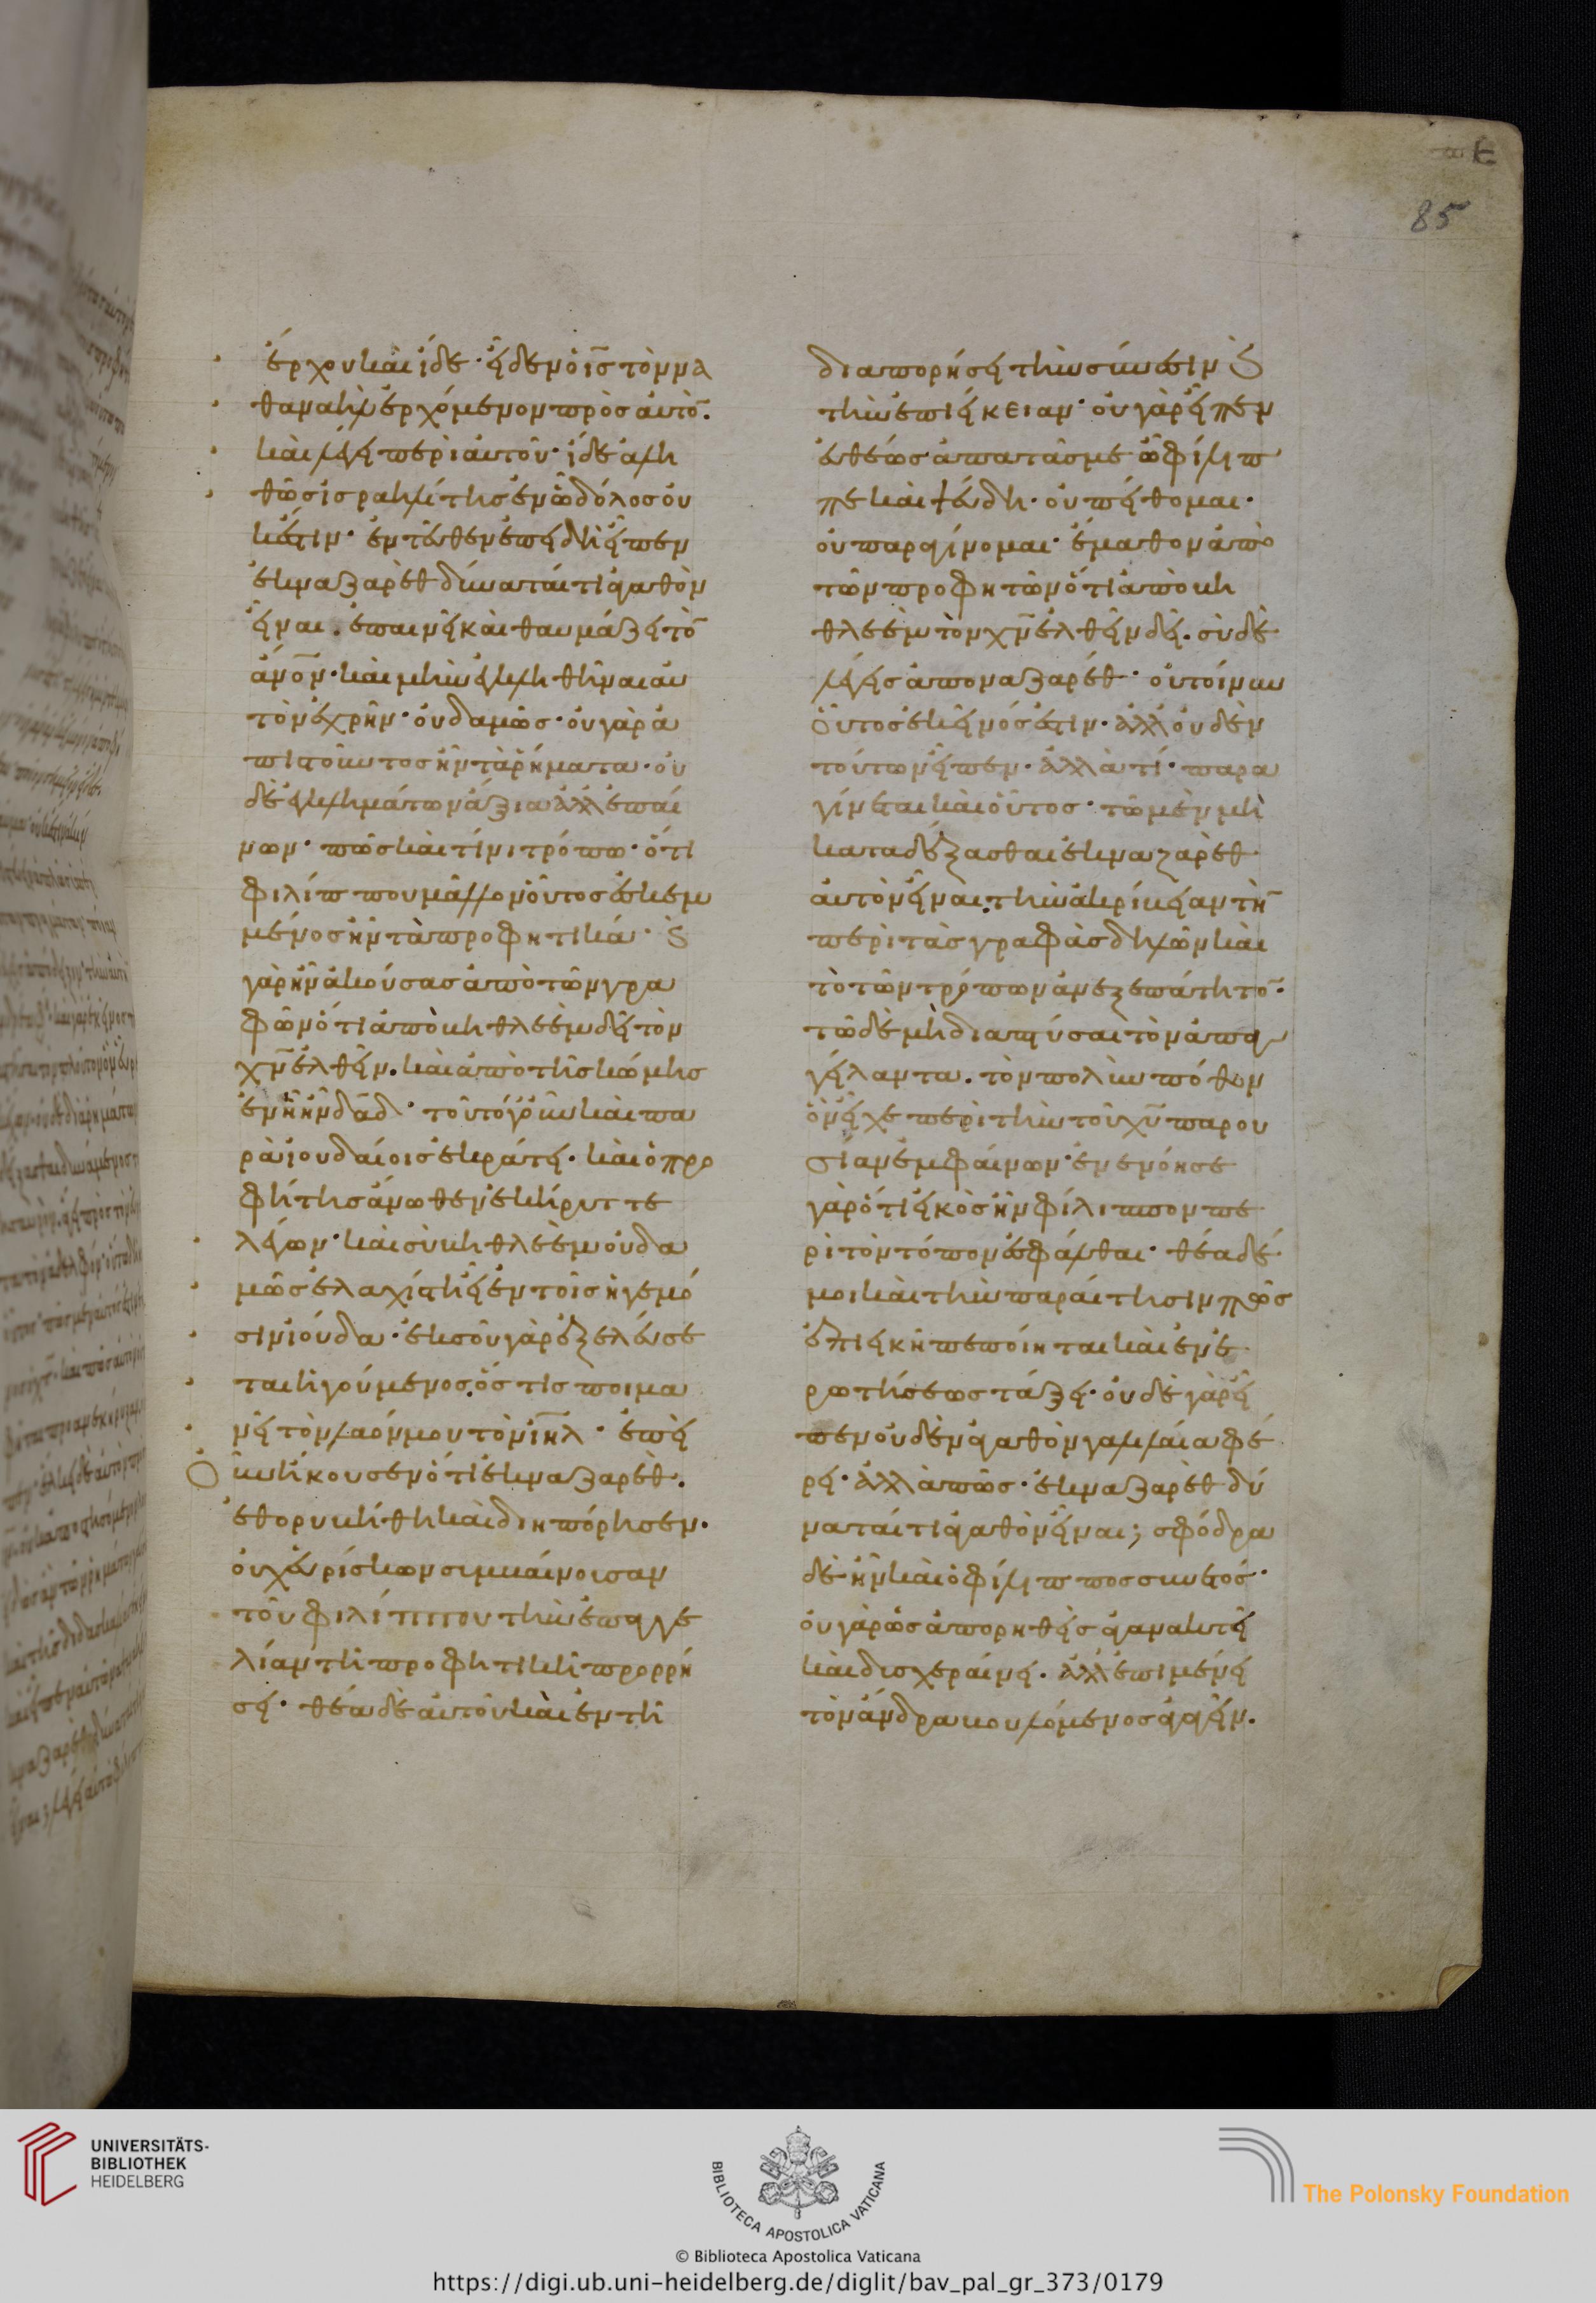 ε
85
ἔρχου καὶ ἴδε· εἶδεν ὁ ις̄ τὸν να
θαναὴλ ἐρχόμενον πρὸς αὐτο̄.
καὶ λέγει περὶ αὐτοῦ· ἴδε ἀλη
θῶς ἰσραηλίτης ἐν ᾧ δόλος οὐ
κ ἔστιν· ἐντεῦθεν ἐπειδὴ εἶπεν
ἐκ ναζαρὲθ δύναταί τι ἀγαθὸν
εἶναι. ἐπαινεῖ καὶ θαυμάζει το̄
ἄνο̄ν· καὶ μὴν ἐγκληθῆναι αὐ
τὸν ἐχρῆν· οὐδαμῶς· οὐ γὰρ ἀ
πιστοῦντος ἦν τὰ ῥήματα· οὐ
δὲ ἐγκλημάτων ἄξια ἀλλ' ἐπαί
νων· πῶς καὶ τίνι τρόπω· ὅτι
φιλίππου μᾶλλον οὗτος ἐσκεμ
μένος ἦν τὰ προφητικά· καὶ
γὰρ ἦν ἀκούσας ἀπὸ τῶν γρα
φῶν ὅτι ἀπὸ βηθλεὲμ δεῖ τὸν
χν̄ ἐλθεῖν. καὶ ἀπὸ τῆς κώμης
ἐν ᾗ ἦν δᾱδ· τοῦτο γοῦν καὶ πα
ρὰ ἰουδαίοις ἐκράτει· καὶ ὁ προ
φήτης ἄνωθεν ἐκήρυττε
λέγων· καὶ σὺ βηθλεὲμ οὐδα
μῶς ἐλαχίστη εἶ ἐν τοῖς ἡγεμό
σιν ἰούδα· ἐκ σοῦ γὰρ ἐξελεύσε
ται ἡγούμενος, ὅστις ποιμα
νεῖ τὸν λαόν μου τὸν ιη̄λ· ἐπεὶ
οὖν ἤκουσεν ὅτι ἐκ ναζαρέθ.
ἐθορυβήθη καὶ διηπόρησεν.
οὐχ εὑρίσκων συμβαίνουσαν
τοῦ φιλίππου τὴν ἐπαγγε
λίαν τῆ προφητικῆ προρρή
σει· θέα δὲ αὐτοῦ καὶ ἐν τῆ
διαπορήσει τὴν σύνεσιν καὶ
τὴν ἐπιείκειαν· οὐ γὰρ εἶπεν
εὐθέως ἀπατᾶς με ὦ φίλιπ
πε καὶ ψεύδη· οὐ πείθομαι·
οὐ παραγίνομαι· ἔμαθον ἀπὸ
τῶν προφητῶν ὅτι ἀπὸ βη
θλεὲμ τὸν χν̄ ἐλθεῖν δεῖ. σὺ δὲ
λέγεις ἀπο ναζαρέθ· οὐ τοίνυν
οὗτος ἐκεῖνός ἐστιν· ἀλλ' οὐδὲν
τούτων εἶπεν· ἀλλὰ τί· παρα
γίνεται καὶ οὗτος· τῶ μὲν μὴ
καταδέξασθαι ἐκ ναζαρὲθ
αὐτὸν εἶναι, τὴν ἀκρίβειαν τη̄
περὶ τὰς γραφὰς δηλῶν καὶ
τὸ τῶν τρόπων ἀνεξεπάτητο̄.
τῶ δὲ μὴ διαπτύσαι τὸν ἀπαγ
γείλαντα. τὸν πολὺν πόθον
ὃν εἶχε περὶ τὴν τοῦ χῡ παρου
σίαν ἐμφαίνων· ἐνενόησε
γὰρ ὅτι εἰκὸς ἦν φίλιππον πε
ρὶ τὸν τόπον ἐσφάλθαι· θέα δέ
μοι καὶ τὴν παραίτησιν πῶς
ἐπιεικῆ πεποίηται καὶ ἐν ἐ
ρωτήσεως τάξει· οὐδὲ γὰρ εἶ
πεν οὐδὲν ἀγαθὸν γαλιλαία φέ
ρει· ἀλλὰ πῶς· ἐκ ναζαρὲθ δύ
ναταί τι ἀγαθὸν εἶναι; σφόδρα
δὲ ἦν καὶ ὁ φίλιππος συνετός·
οὐ γὰρ ὡς ἀπορηθεὶς ἀγανακτεῖ
καὶ δυσχεραίνει. ἀλλ' ἐπιμένει
τὸν ἄνδρα βουλόμενος ἀγαγεῖν.
UNIVERSITÄTS-
BIBLIOTHEK
HEIDELBERG
BIBLIOTECA APOSTOLICA VATICANA
The Polonsky Foundation
© Biblioteca Apostolica Vaticana
https://digi.ub.uni-heidelberg.de/diglit/bav_pal_gr_373/0179